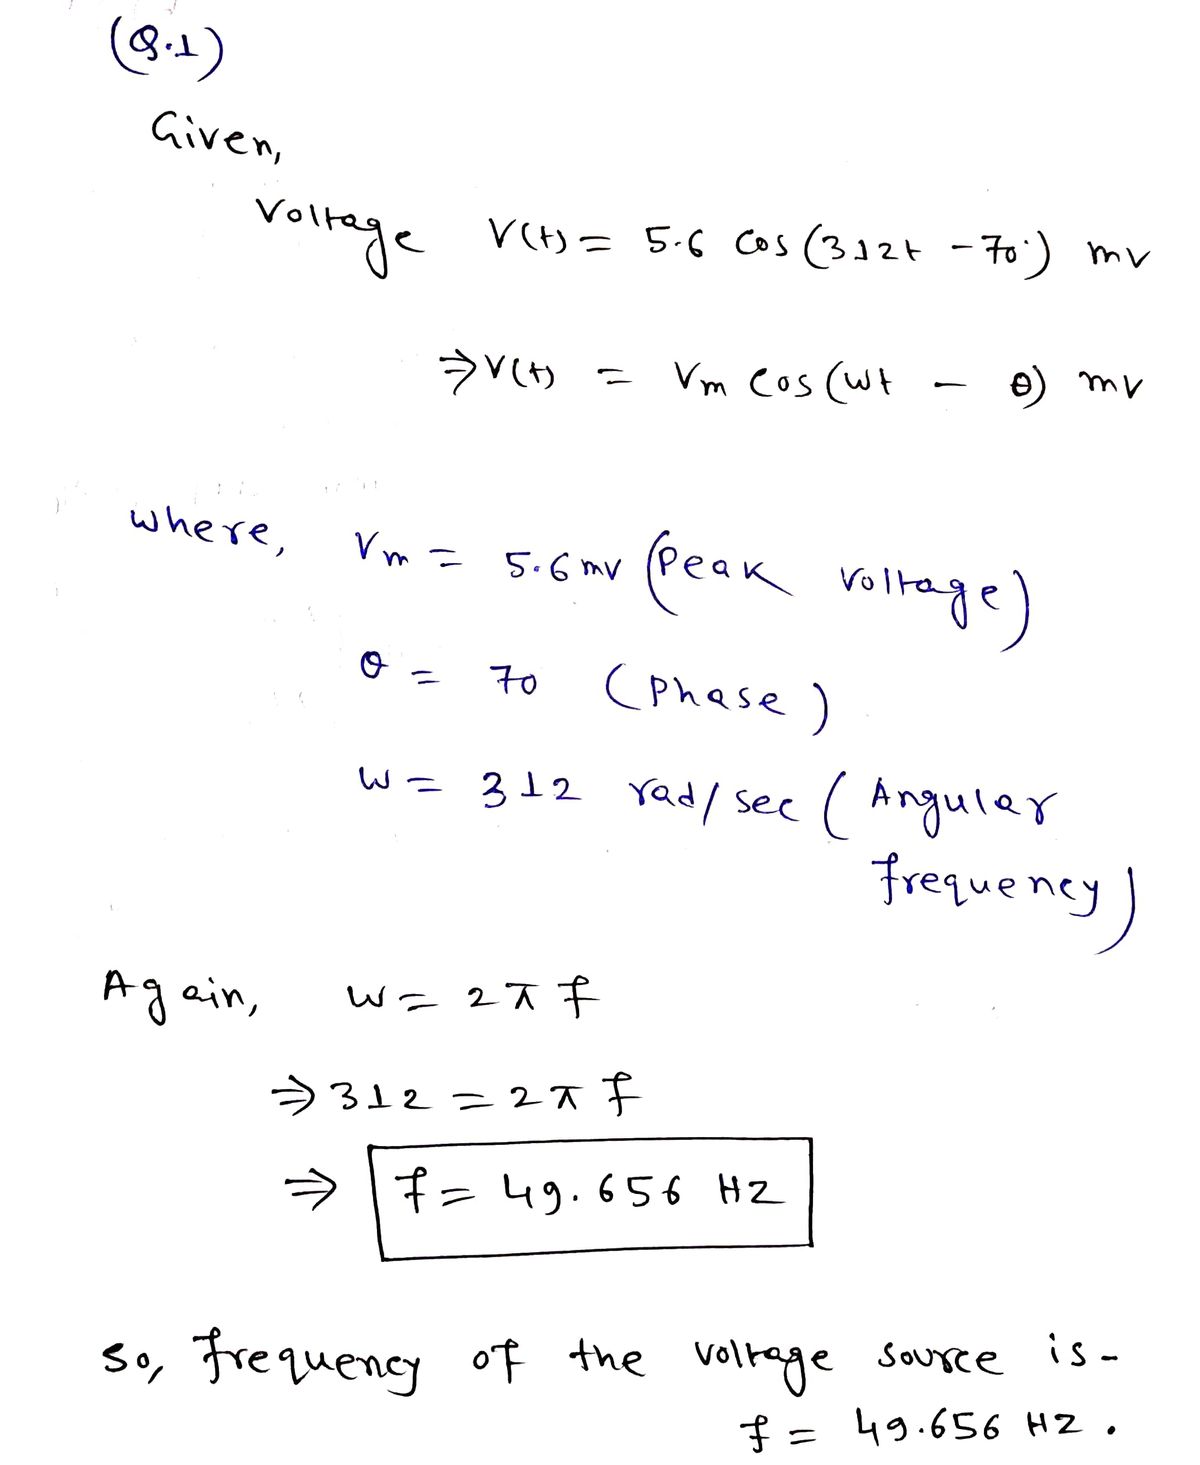 (Q.1)
Given,
Voltage V(t) = 5.6 Cos (312t - 70°) mv
⇒ V(t) = Vm Cos (wt - θ) mv
where, Vm = 5.6 mv (Peak Voltage)
θ = 70 (Phase)
w = 312 rad/sec (Angular
frequency)
Again, w = 2π f
⇒ 312 = 2π f
⇒ f = 49.656 HZ
So, frequency of the voltage source is -
f = 49.656 HZ.